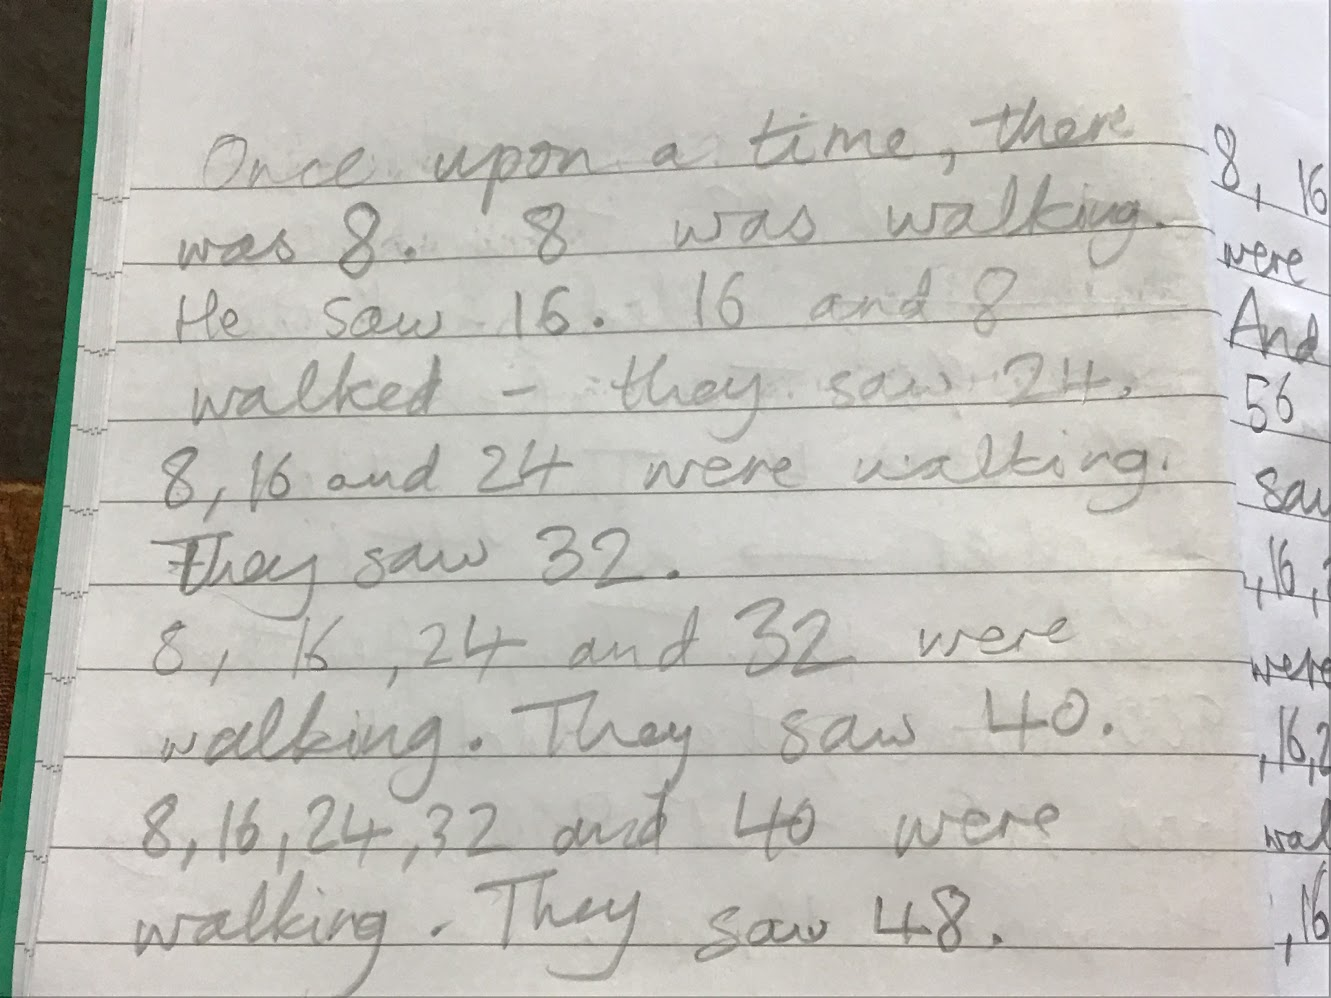 Once upon a time, there
was 8. 8 was walking.
He saw 16. 16 and 8
walked - they saw 24.
8, 16 and 24 were walking.
They saw 32.
8, 16, 24 and 32 were
walking. They saw 40.
8, 16, 24, 32 and 40 were
walking. They saw 48.
8, 16
were
And
56
,16,
were
,16,2
,16